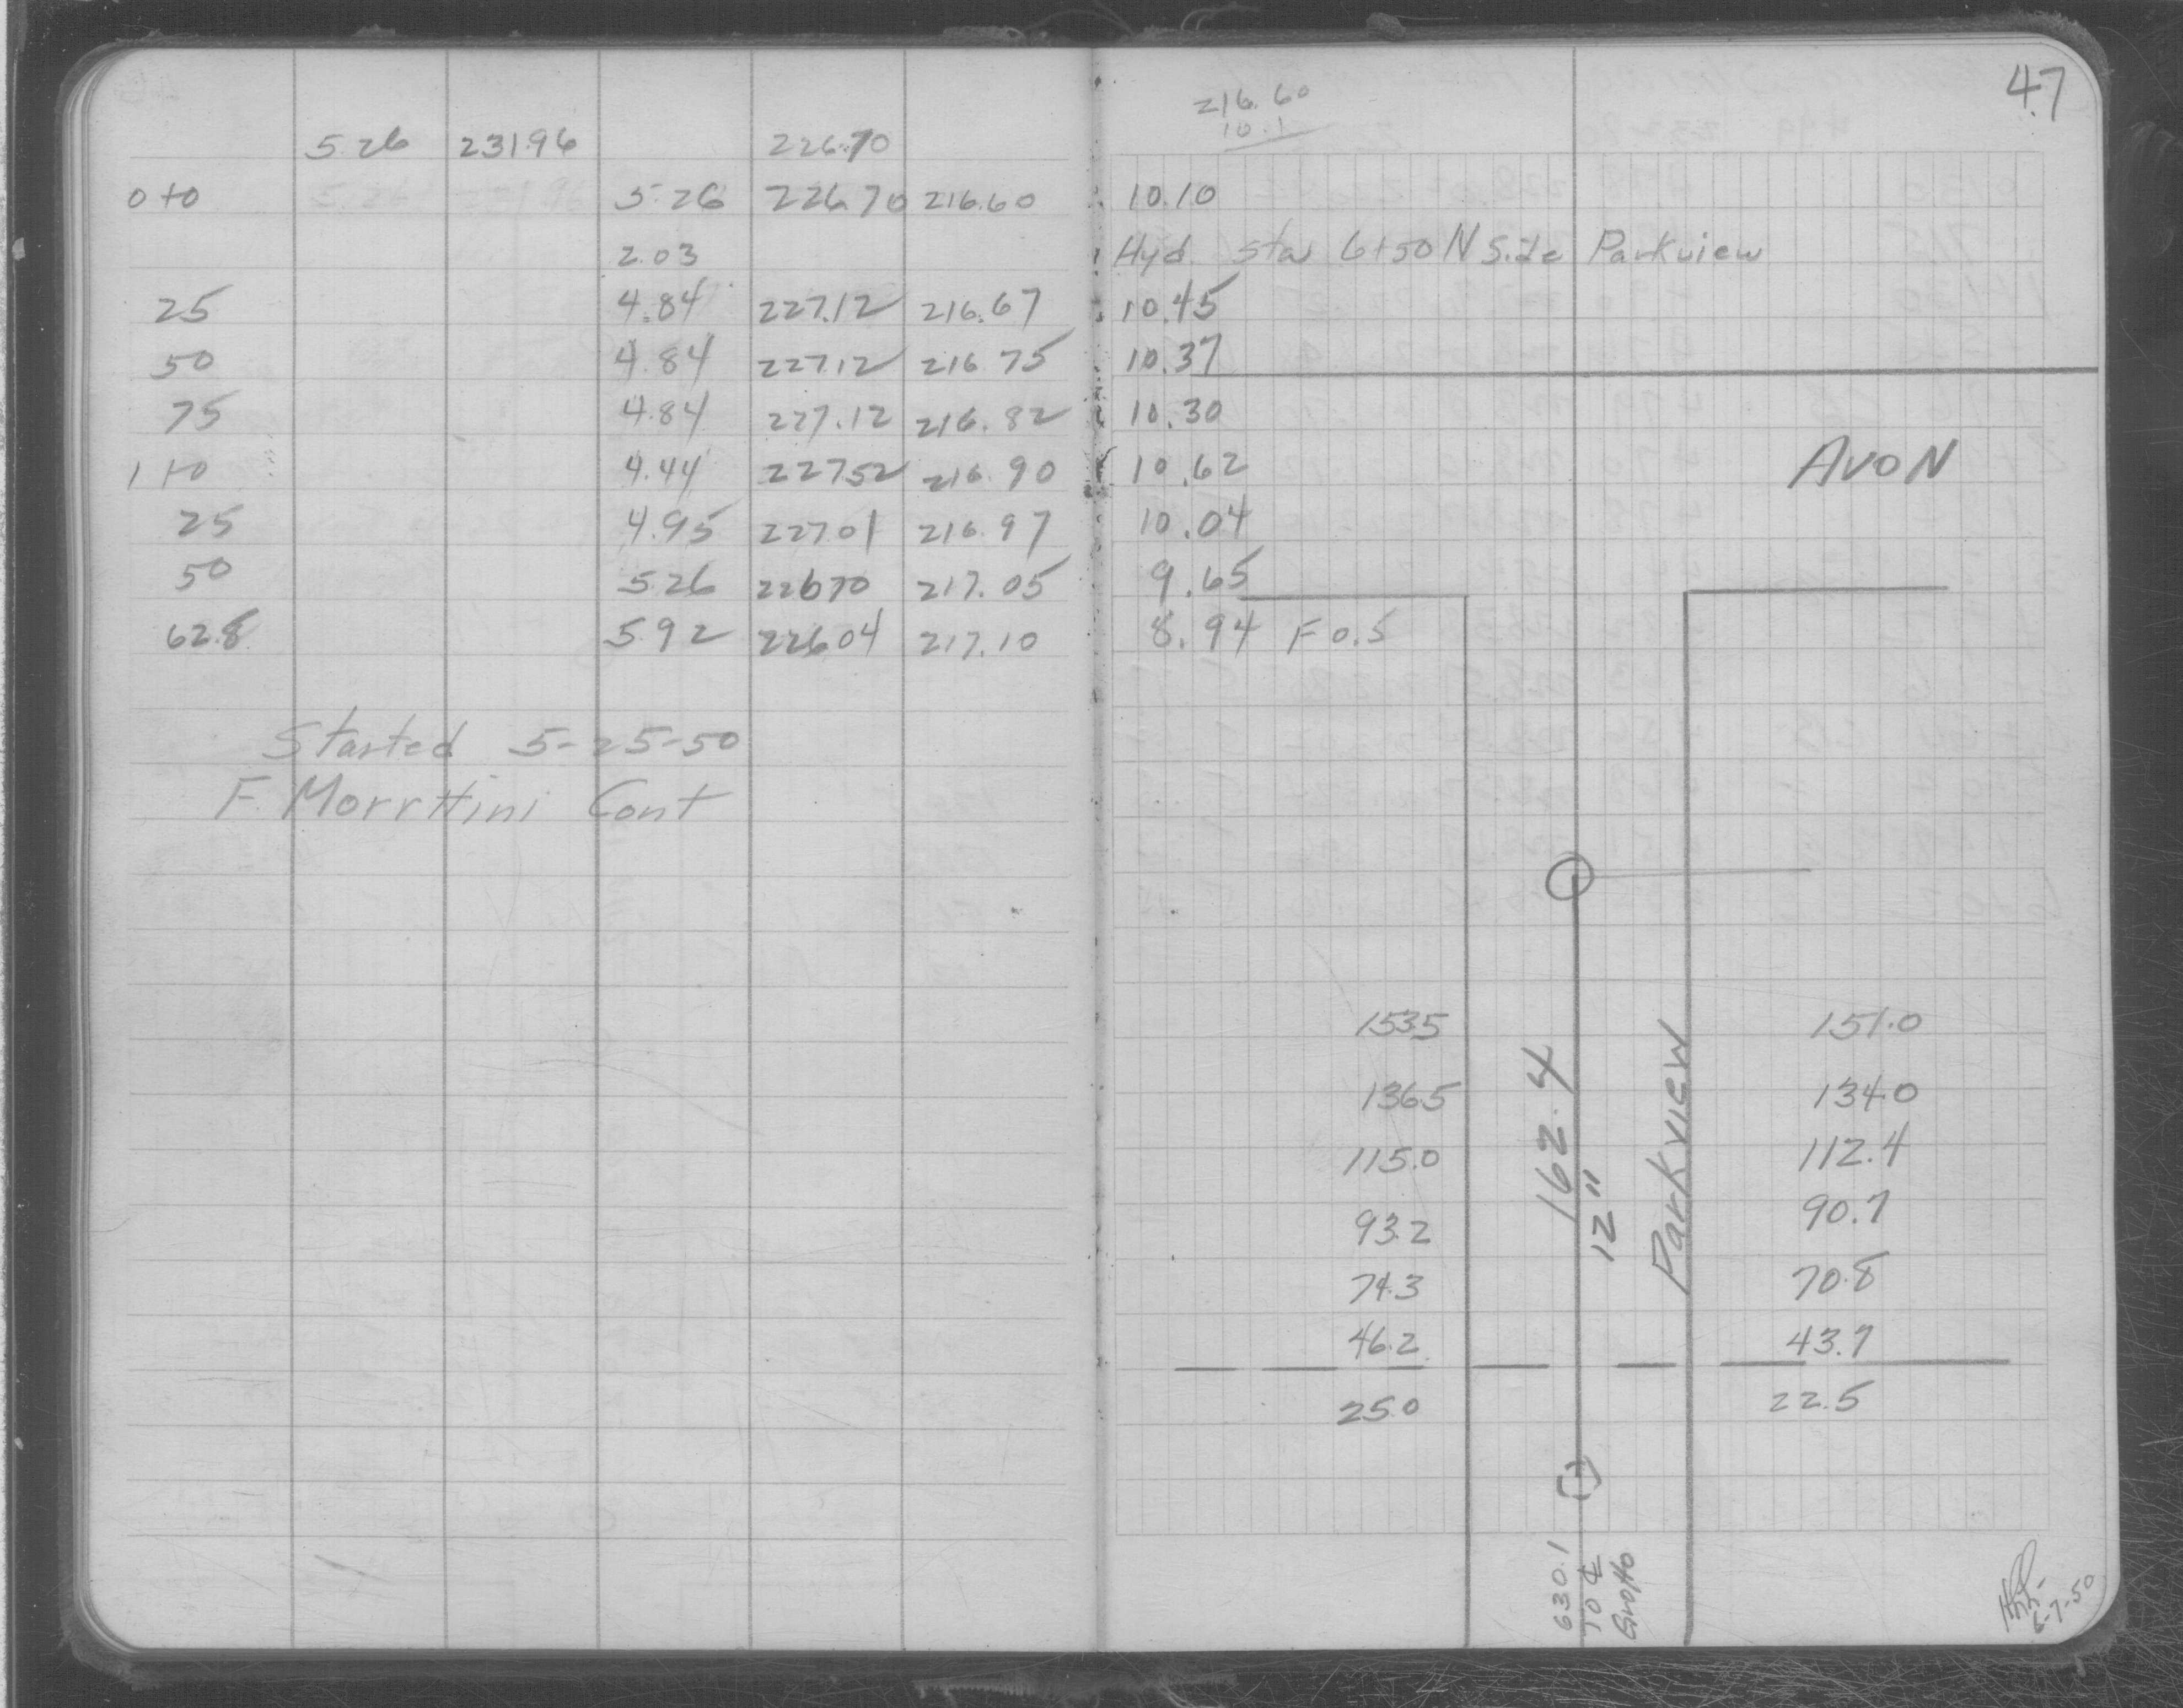 47
216.60
10.1
5.26 231.96 226.70
0+0 5.26 226.70 216.60 10.10
2.03 Hyd. Sta 6+50 N Side Parkview
25 4.84 227.12 216.67 10.45
50 4.84 227.12 216.75 10.37
75 4.84 227.12 216.82 10.30
1+0 4.44 227.52 216.90 10.62
25 4.95 227.01 216.97 10.04
50 5.26 226.70 217.05 9.65
62.8 5.92 226.04 217.10 8.94 F 0.5
Started 5-25-50
F. Morrttini Cont
AVON
153.5 151.0
136.5 134.0
115.0 112.4
93.2 90.7
74.3 70.8
46.2 43.7
25.0 22.5
162.4
12"
Parkview
630.1
TO ℄
Grotto
6-7-50